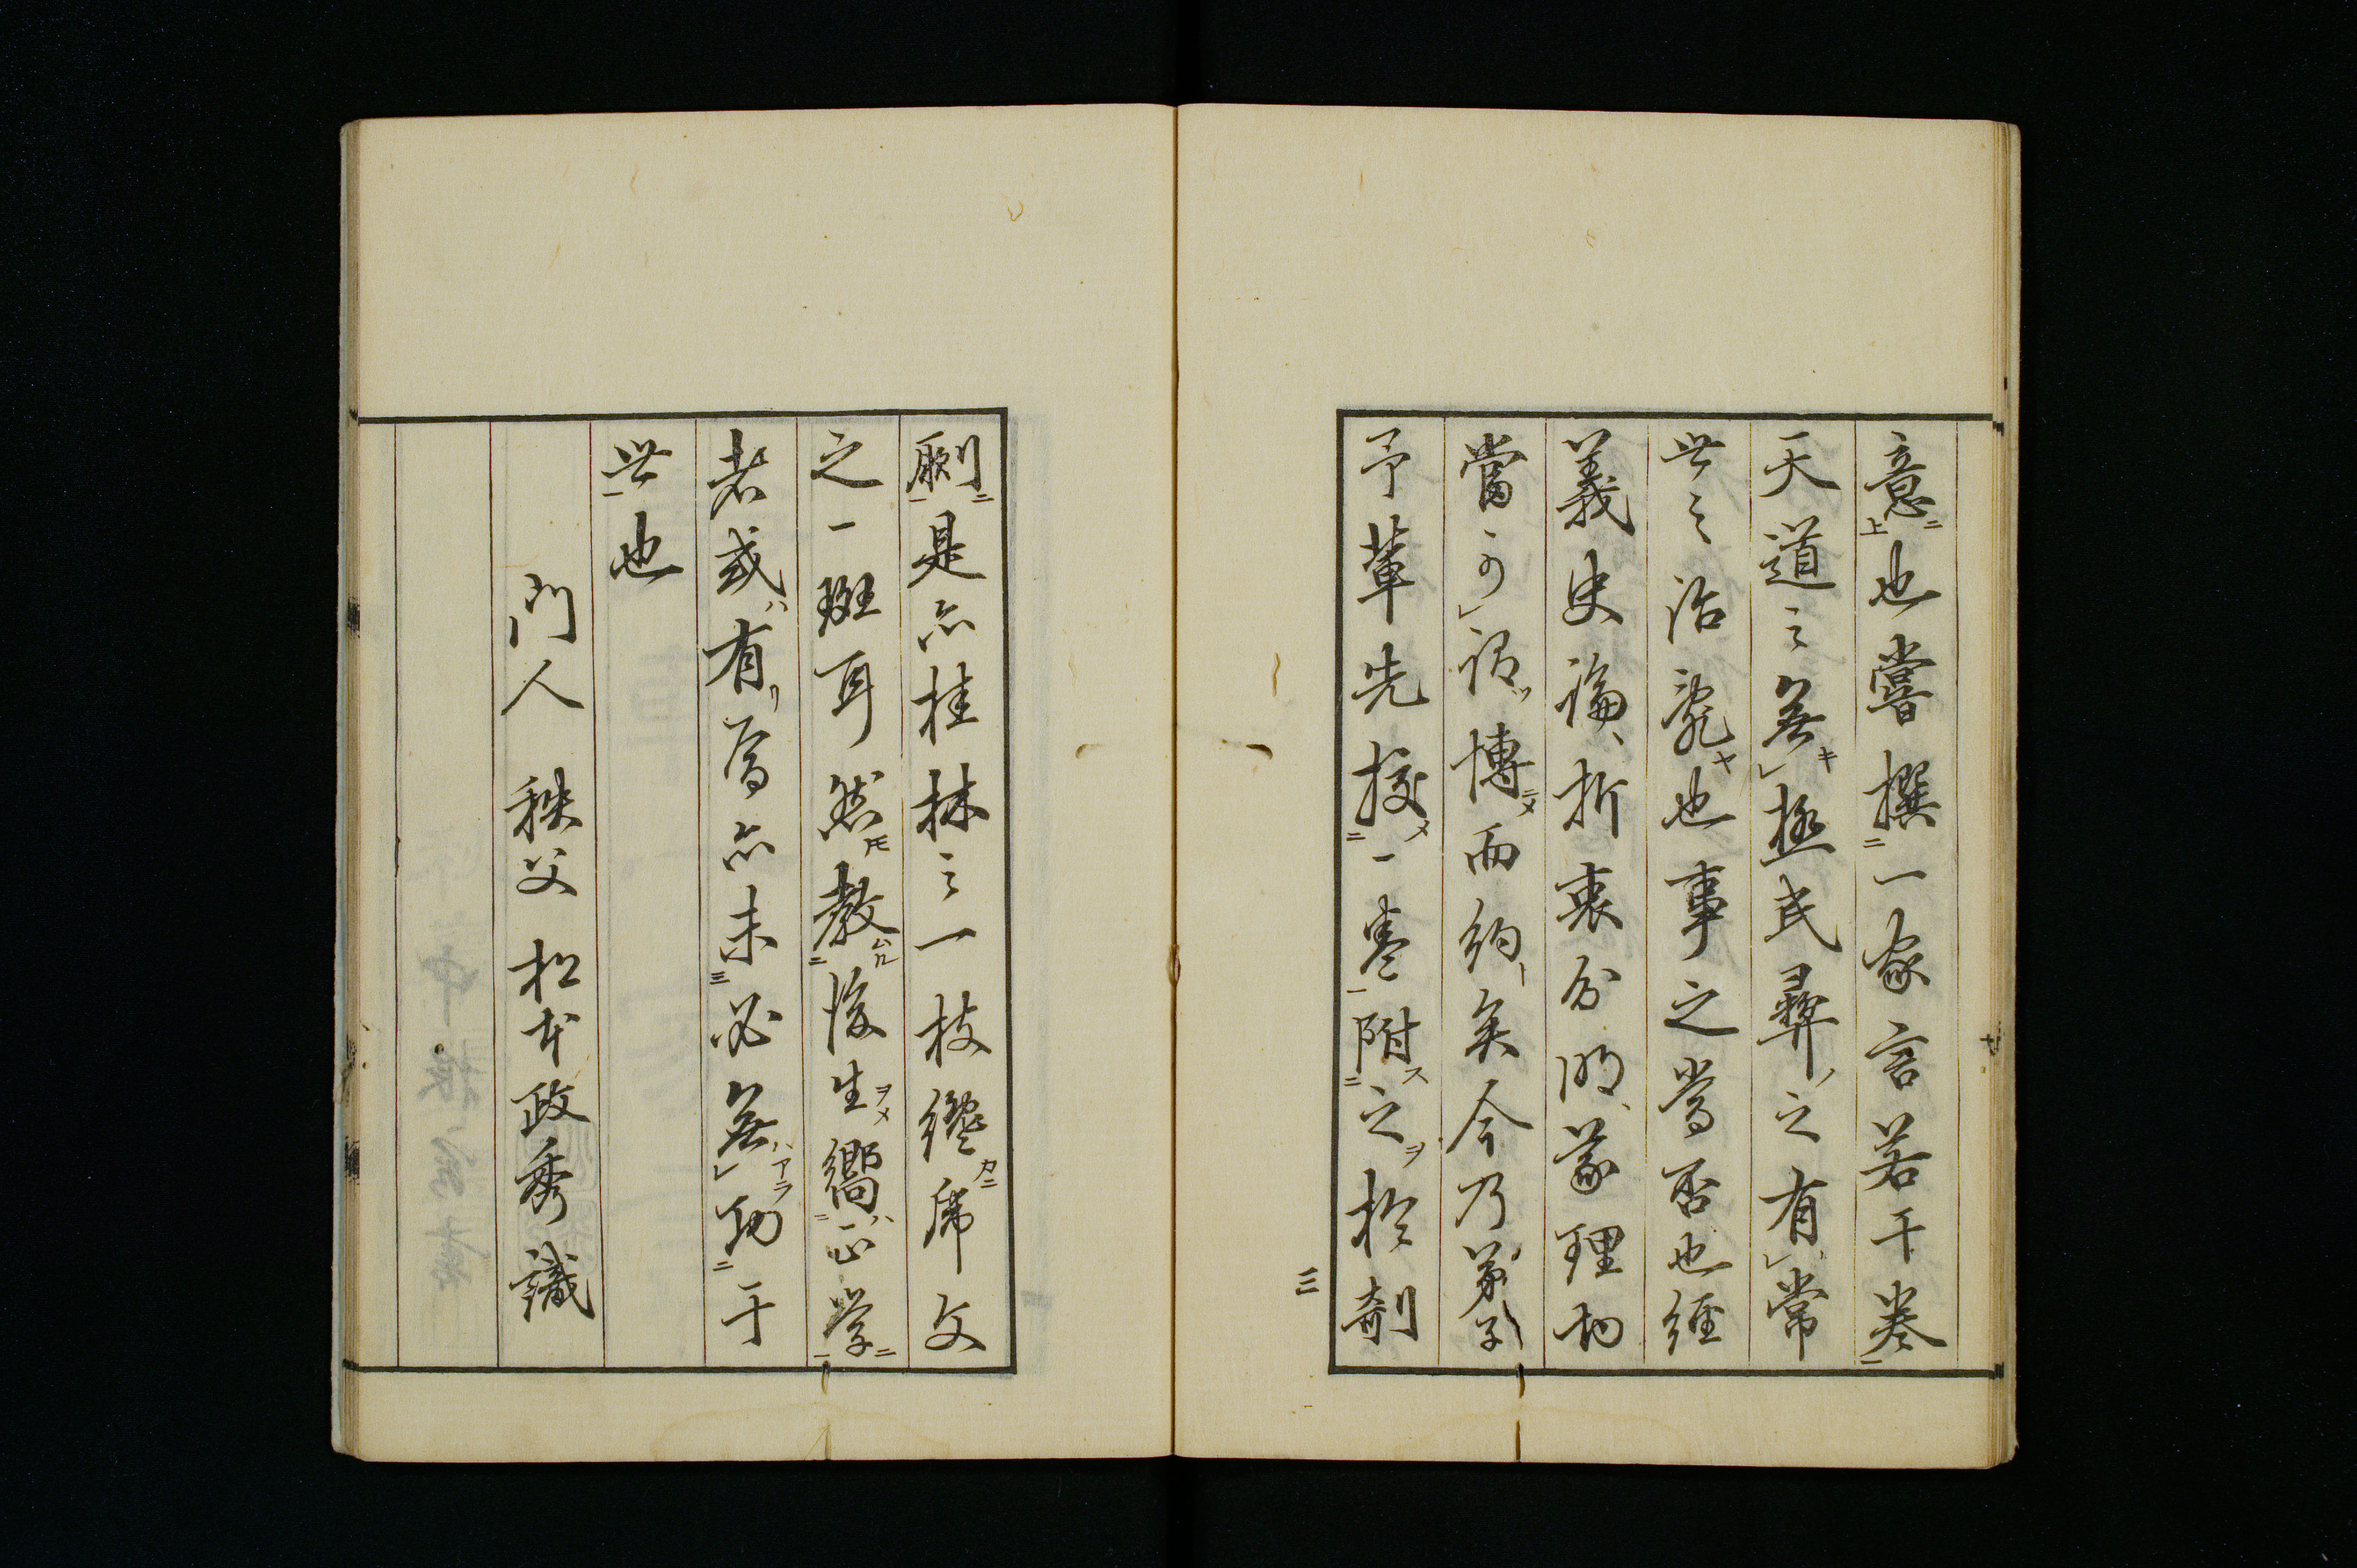 意也嘗撰一家言若干卷
天道之無極民彝之有常
世之治亂也事之當否也經
義史論折衷分明義理切
當可謂博而約矣今乃第
予輩先授一卷附之於剞
三
劂是亦桂林之一枝纔席文
之一斑耳然教後生嚮正学
者或有為亦未必無功于
世也
門人秩父松本政秀識